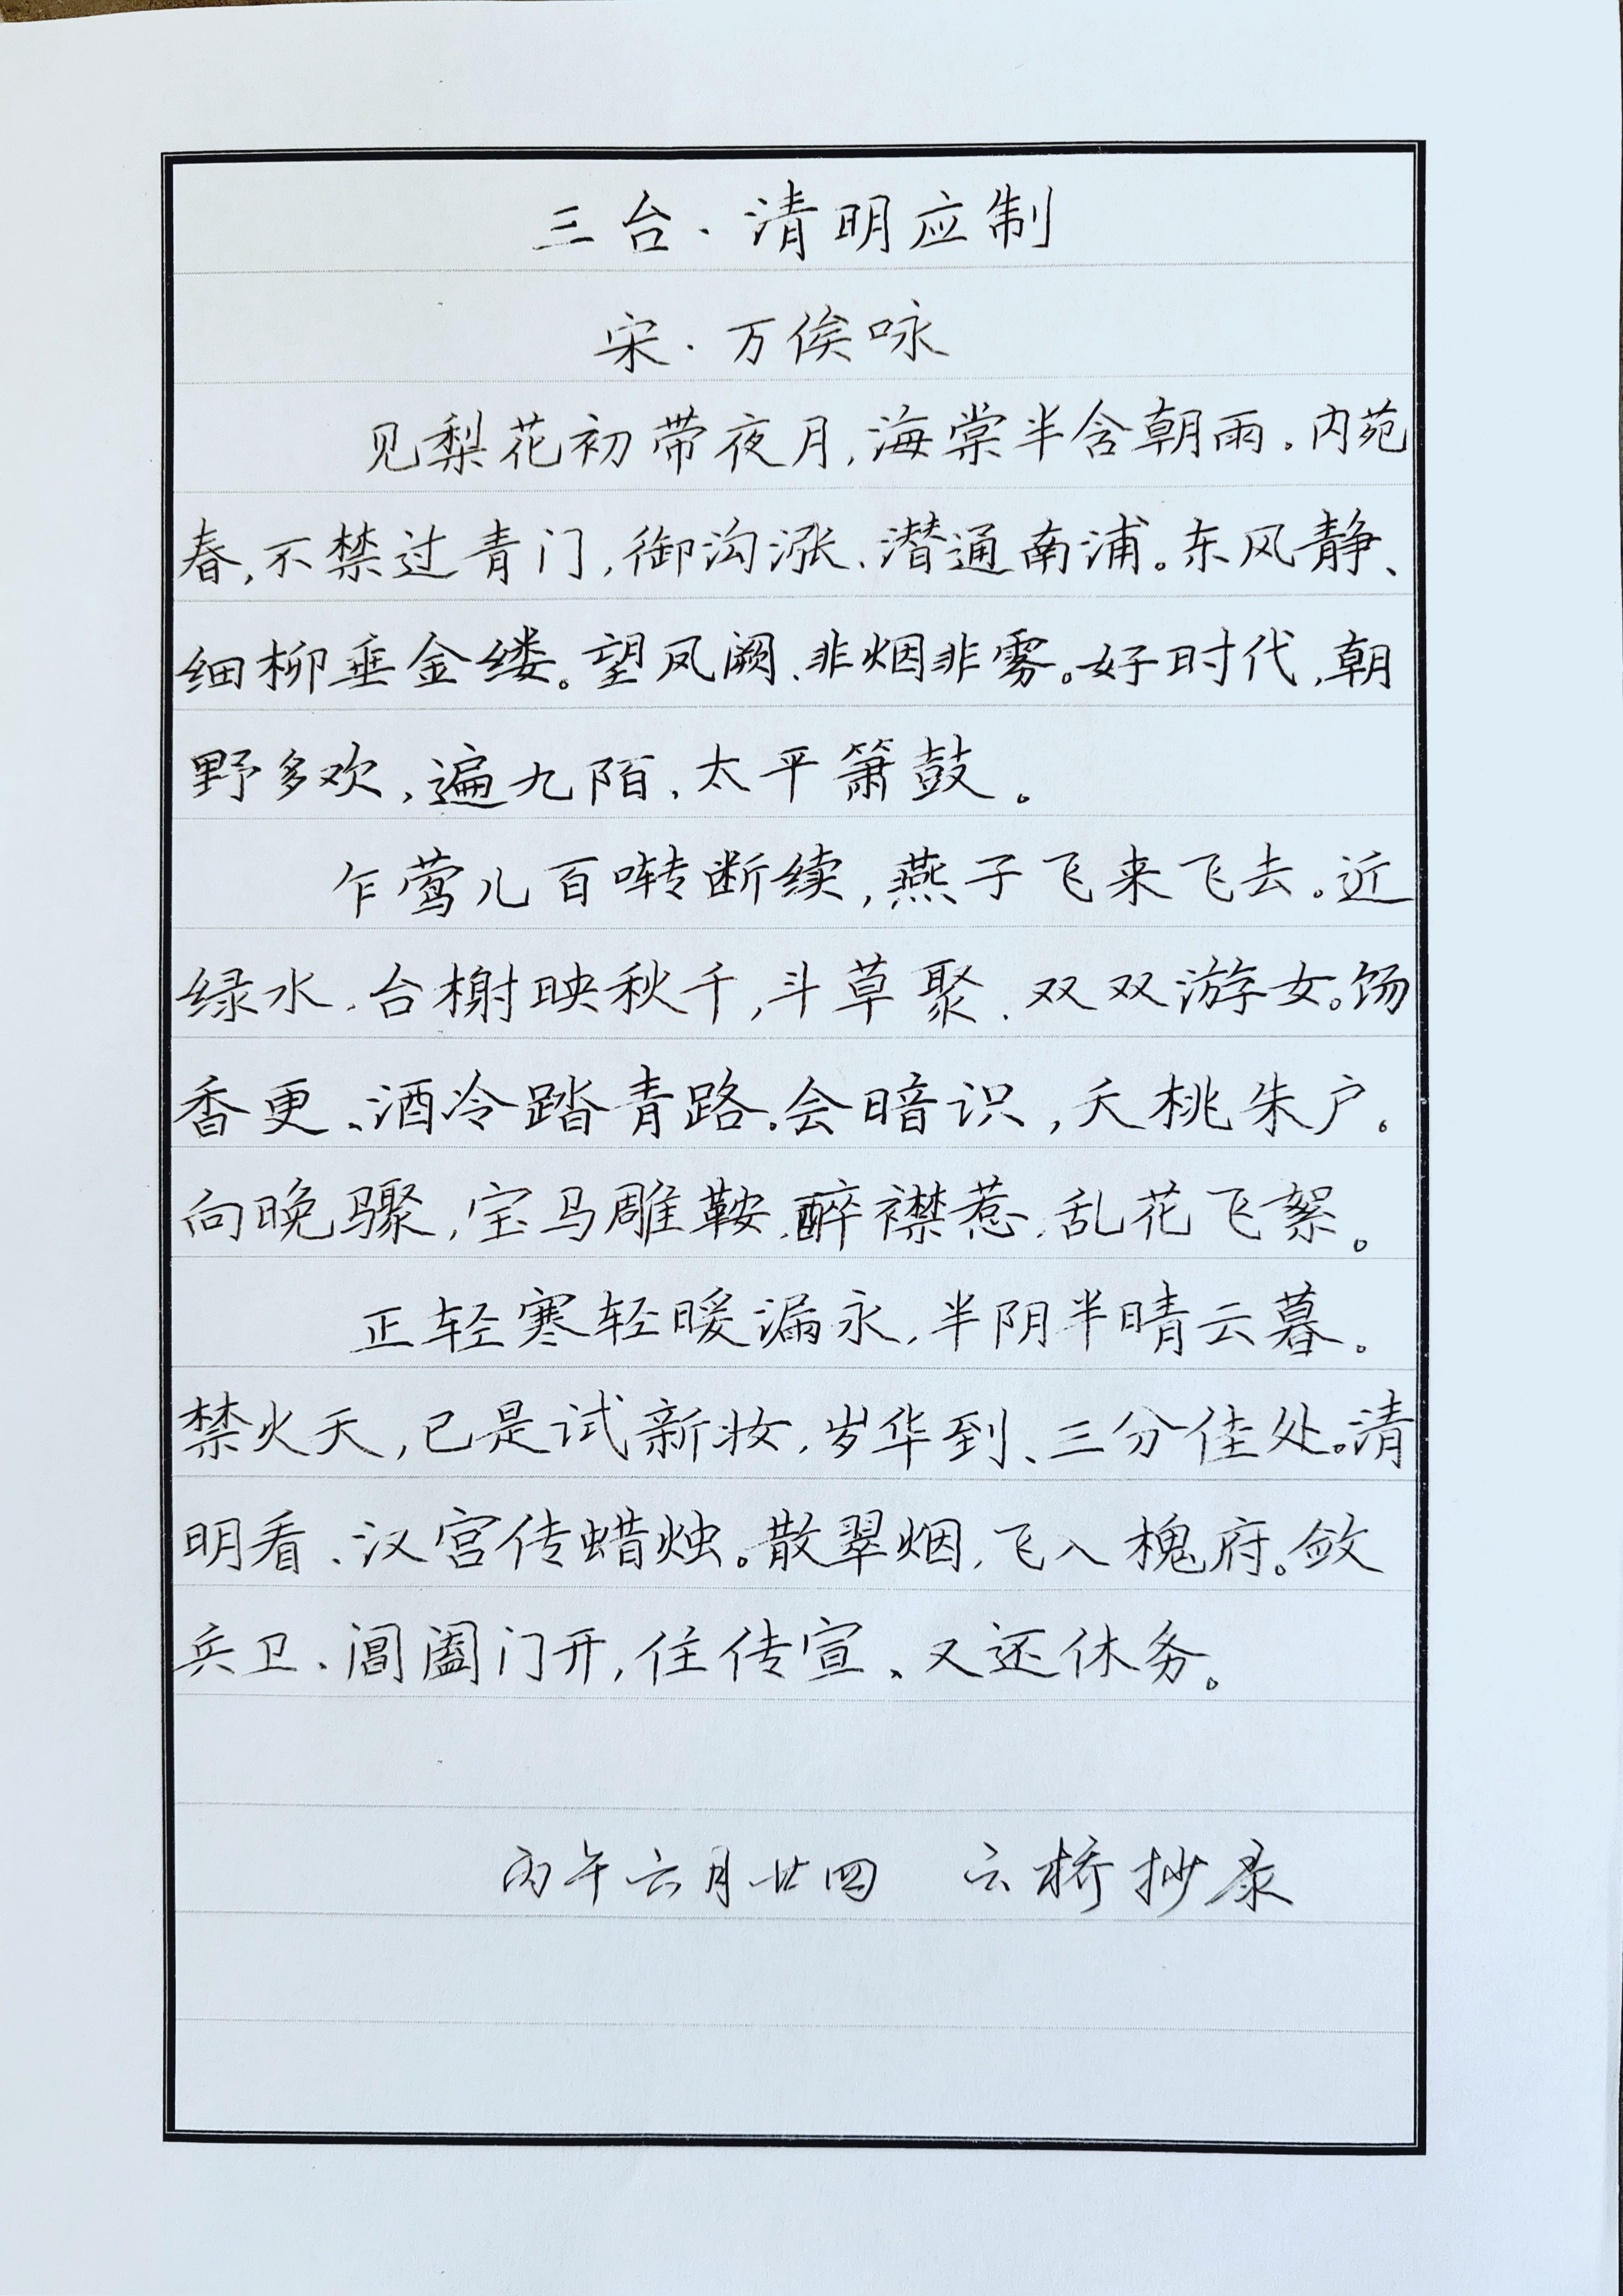 三台·清明应制
宋·万俟咏
见梨花初带夜月,海棠半含朝雨。内苑
春,不禁过青门,御沟涨、潜通南浦。东风静、
细柳垂金缕。望凤阙、非烟非雾。好时代,朝
野多欢,遍九陌、太平箫鼓。
乍莺儿百啭断续,燕子飞来飞去。近
绿水、台榭映秋千,斗草聚、双双游女。饧
香更、酒冷踏青路。会暗识,夭桃朱户。
向晚骤,宝马雕鞍,醉襟惹,乱花飞絮。
正轻寒轻暖漏永,半阴半晴云暮。
禁火天,已是试新妆,岁华到、三分佳处。清
明看、汉宫传蜡烛。散翠烟,飞入槐府。敛
兵卫、阊阖门开,住传宣、又还休务。
丙午六月廿四 云桥抄录